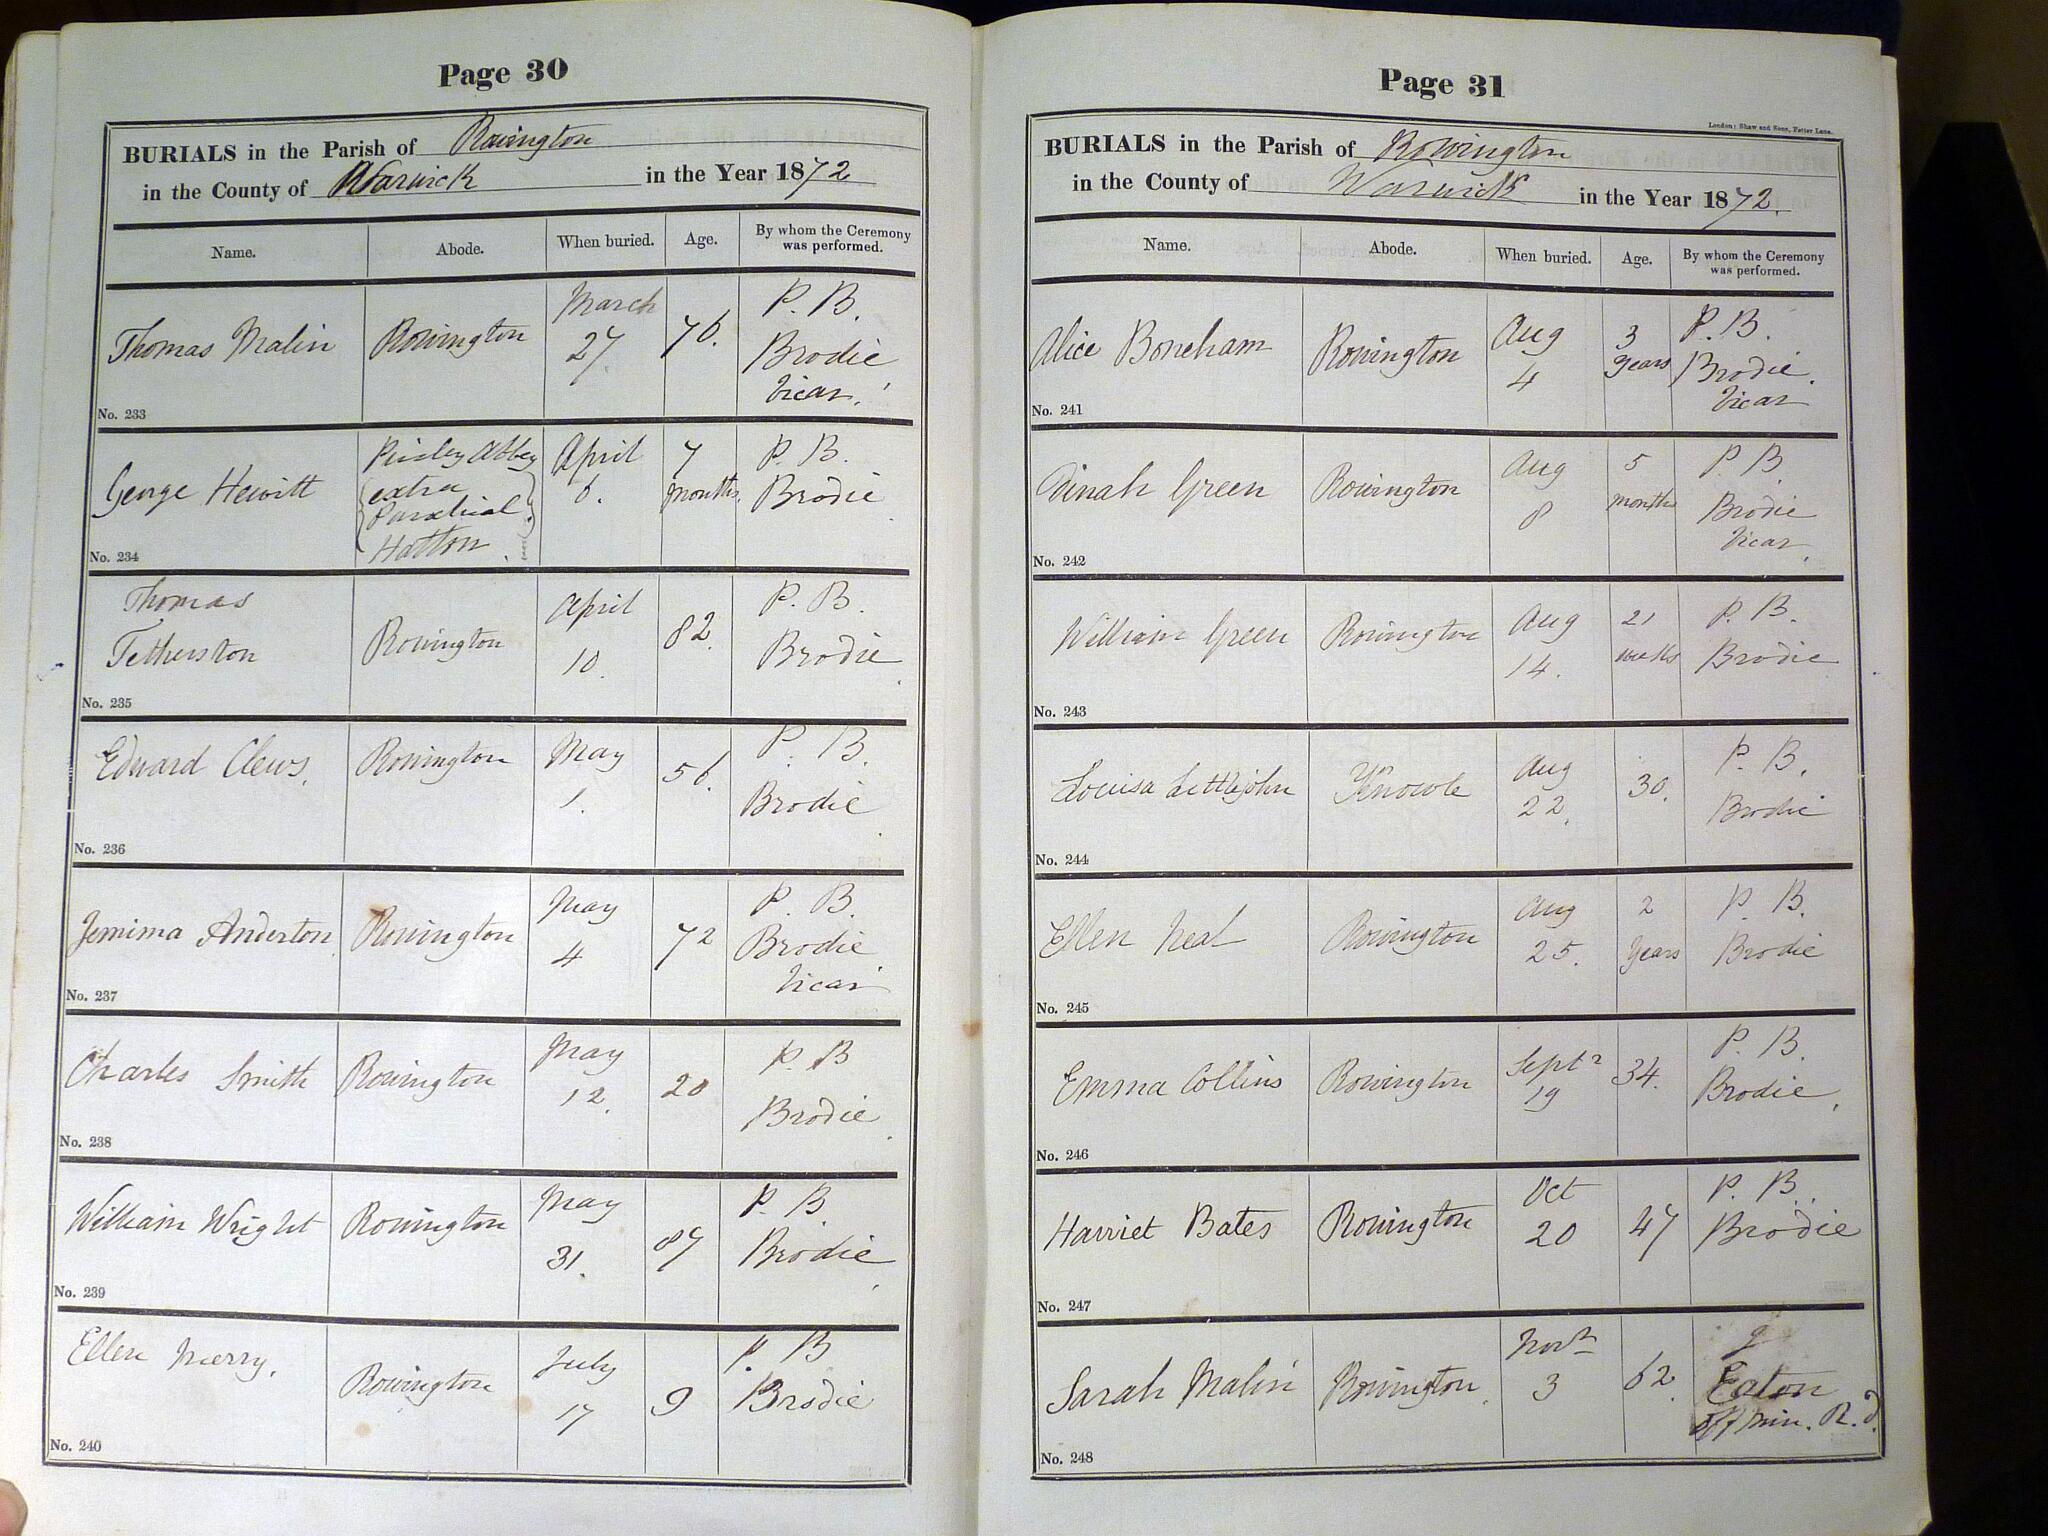 Page 30
BURIALS in the Parish of Rowington
in the County of Warwick in the Year 1872
Name. Abode. When buried. Age. By whom the Ceremony was performed.
Thomas Malin Rowington March 27 76. P. B. Brodie Vicar.
No. 233
George Hewitt Pinley Abbey extra Parochial Hatton. April 6. 7 months. P. B. Brodie
No. 234
Thomas Tetherston Rowington April 10. 82. P. B. Brodie.
No. 235
Edward Clews. Rowington May 1. 56. P. B. Brodie.
No. 236
Jemima Anderton Rowington May 4 72 P. B. Brodie Vicar
No. 237
Charles Smith Rowington May 12. 20 P. B Brodie.
No. 238
William Wright Rowington May 31. 87 P. B. Brodie,
No. 239
Ellen Merry. Rowington July 17 9 P. B Brodie
No. 240
Page 31
London: Shaw and Sons, Fetter Lane.
BURIALS in the Parish of Rowington
in the County of Warwick in the Year 1872.
Name. Abode. When buried. Age. By whom the Ceremony was performed.
Alice Boneham Rowington Aug 4 3 years P. B. Brodie. Vicar
No. 241
Dinah Green Rowington Aug 8 5 months P. B Brodie Vicar.
No. 242
William Green Rowington Aug 14. 21 weeks P. B. Brodie
No. 243
Louisa Littlejohn Knowle Aug 22. 30. P. B. Brodie
No. 244
Ellen Neal Rowington Aug 25. 2 Years P. B. Brodie
No. 245
Emma Collins Rowington Septr 19 34. P. B. Brodie.
No. 246
Harriet Bates Rowington Oct 20 47 P. B. Brodie
No. 247
Sarah Malin Rowington. Novr 3 62. Eaton off min.
No. 248